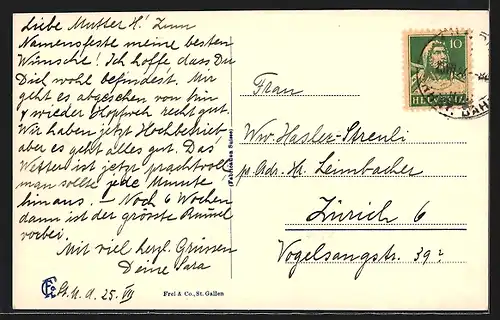 Liebe Mutter H! Zum
Namensfeste meine besten
Wünsche! Ich hoffe dass Du
Dich wohl befindest. Mir
geht es abgesehen von hin
& wieder Kopfweh recht gut.
Wir haben jetzt Hochbetrieb
aber es geht alles gut. Das
Wetter ist jetzt prachtvoll
man sollte jede Minute
hinaus. – Noch 6 Wochen
dann ist der grösste Rummel
vorbei.
Mit viel herzl. Grüssen
Deine Sara
25. VII
Frei & Co., St. Gallen
10
HELVETIA
BAH
Frau
Ww. Hasler-Streuli
p. Adr. Hr. Leimbacher
Zürich 6
Vogelsangstr. 39